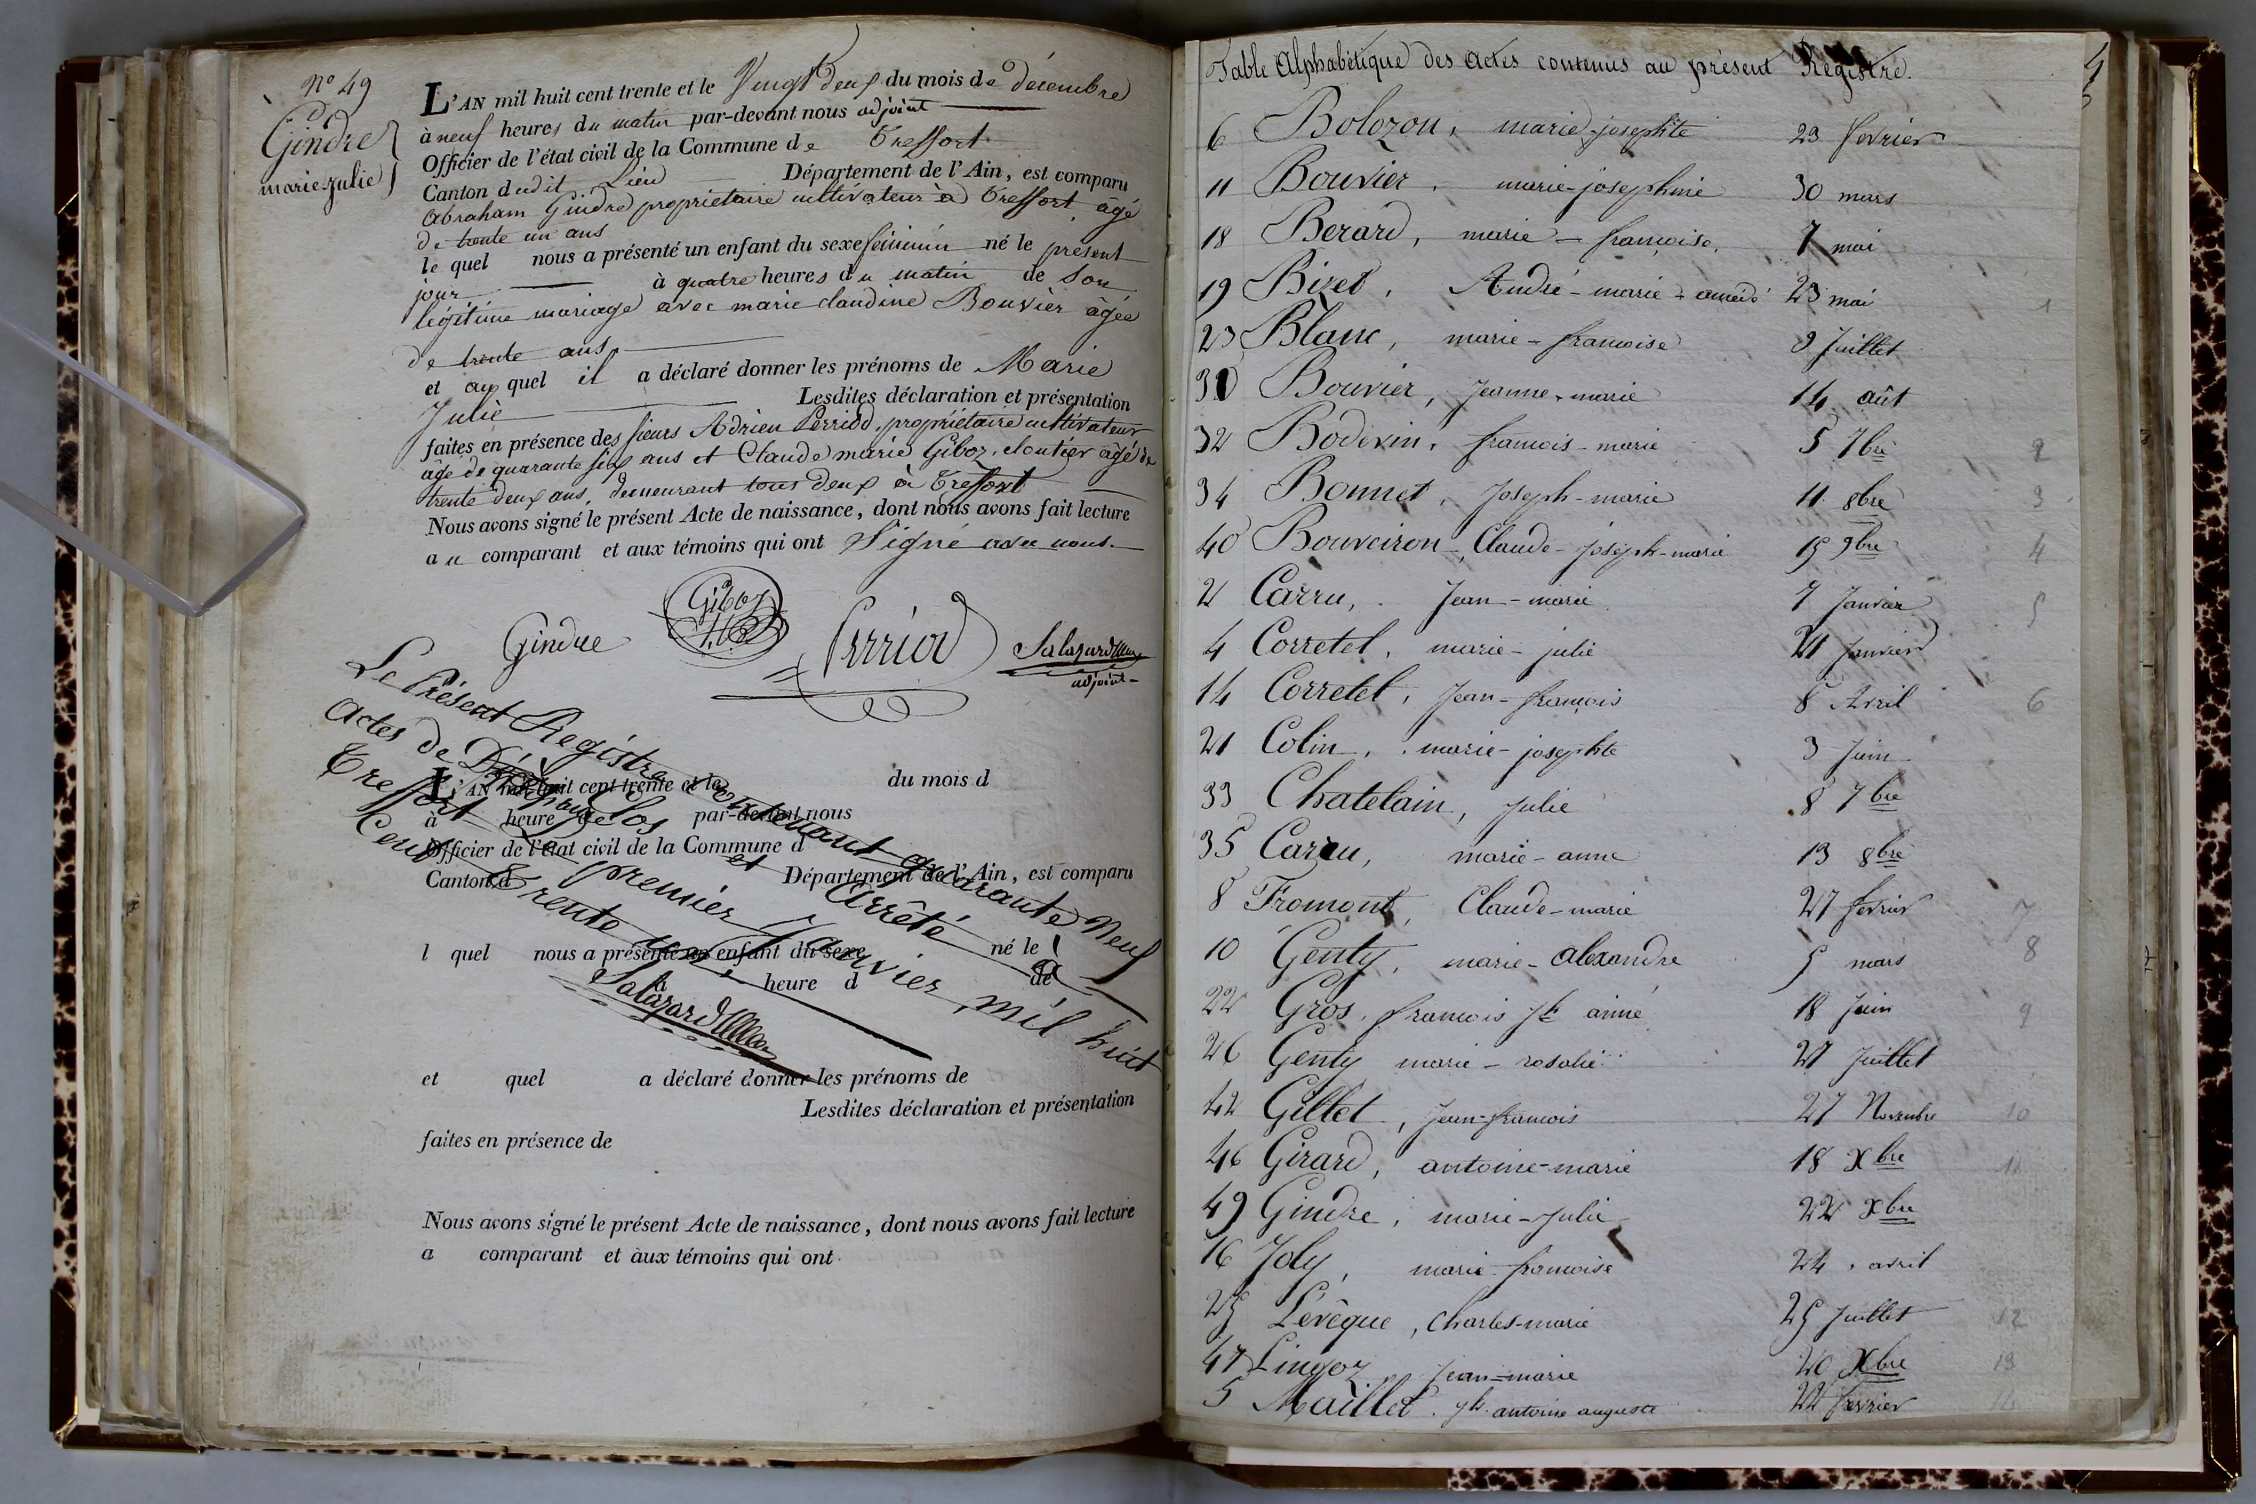 N° 49
Gindre
marie-Julie
L'AN mil huit cent trente et le Vingt deux du mois de décembre
à neuf heures du matin par-devant nous adjoint
Officier de l'état civil de la Commune de Treffort
Canton dudit Lieu Département de l'Ain, est comparu
Abraham Gindre propriétaire cultivateur à Treffort, âgé
de trente un ans
le quel nous a présenté un enfant du sexe féminin né le présent
jour à quatre heures du matin de Son
légitime mariage avec marie claudine Bouvier âgée
de trente ans.
et auquel il a déclaré donner les prénoms de Marie
Julie Lesdites déclaration et présentation
faites en présence des sieurs Adrien Perriod, propriétaire cultivateur
âgé de quarante six ans et Claude marie Giboz, cloutier âgé de
trente deux ans, demeurant tous deux à Treffort
Nous avons signé le présent Acte de naissance, dont nous avons fait lecture
au comparant et aux témoins qui ont Signé avec nous.
Gindre Giboz Perriod Salazard
adjoint
Le Présent Registre Contenant quarante Neuf
Actes de Naissance Clos et Arrêté à
Treffort Le premier Janvier mil huit
Cent Trente un.
Salazard
L'AN mil huit cent trente et le du mois d
à heure d par-devant nous
Officier de l'état civil de la Commune d
Canton d Département de l'Ain, est comparu
l quel nous a présenté un enfant du sexe né le
à heure d de
et quel a déclaré donner les prénoms de
Lesdites déclaration et présentation
faites en présence de
Nous avons signé le présent Acte de naissance, dont nous avons fait lecture
a comparant et aux témoins qui ont
Table Alphabétique des actes contenus au présent Registre.
6 Bolozon, marie-josephte 23 février
11 Bouvier, marie-joséphine 30 mars
18 Berard, marie-françoise, 7 mai
19 Bizet, André-marie-amédé 23 mai 1
23 Blanc, marie-francoise 9 Juillet
30 Bouvier, Jeanne-marie 14 aût
32 Bodevin, francois-marie 5 7bre 2
34 Bonnet, Joseph-marie 11 8bre 3
40 Bouveiron, Claude-joseph-marie 15 9bre 4
2 Carru, Jean-marie 7 Janvier 5
4 Corretel, marie-julie 21 Janvier
14 Corretel, Jean-françois 8 Avril 6
21 Colin, marie-josephte 3 Juin
33 Chatelain, Julie 8 7bre
35 Carru, marie-anne 13 8bre
8 Fromont, Claude-marie 27 fevrier 7
10 Genty, marie-Alexandre 5 mars 8
22 Gros, francois Jh aimé 18 Juin 9
26 Genty marie-rosalie 27 Juillet
42 Gillet, Jean-francois 27 Novembre 10
46 Girard, antoine-marie 18 Xbre 11
49 Gindre, marie-Julie 22 Xbre
16 Joly, marie francoise 24 avril
25 Lévêque, Charles-marie 25 Juillet 12
47 Lingoz, Jean-marie 20 Xbre 13
5 Maillet, Jh antoine auguste 22 fevrier